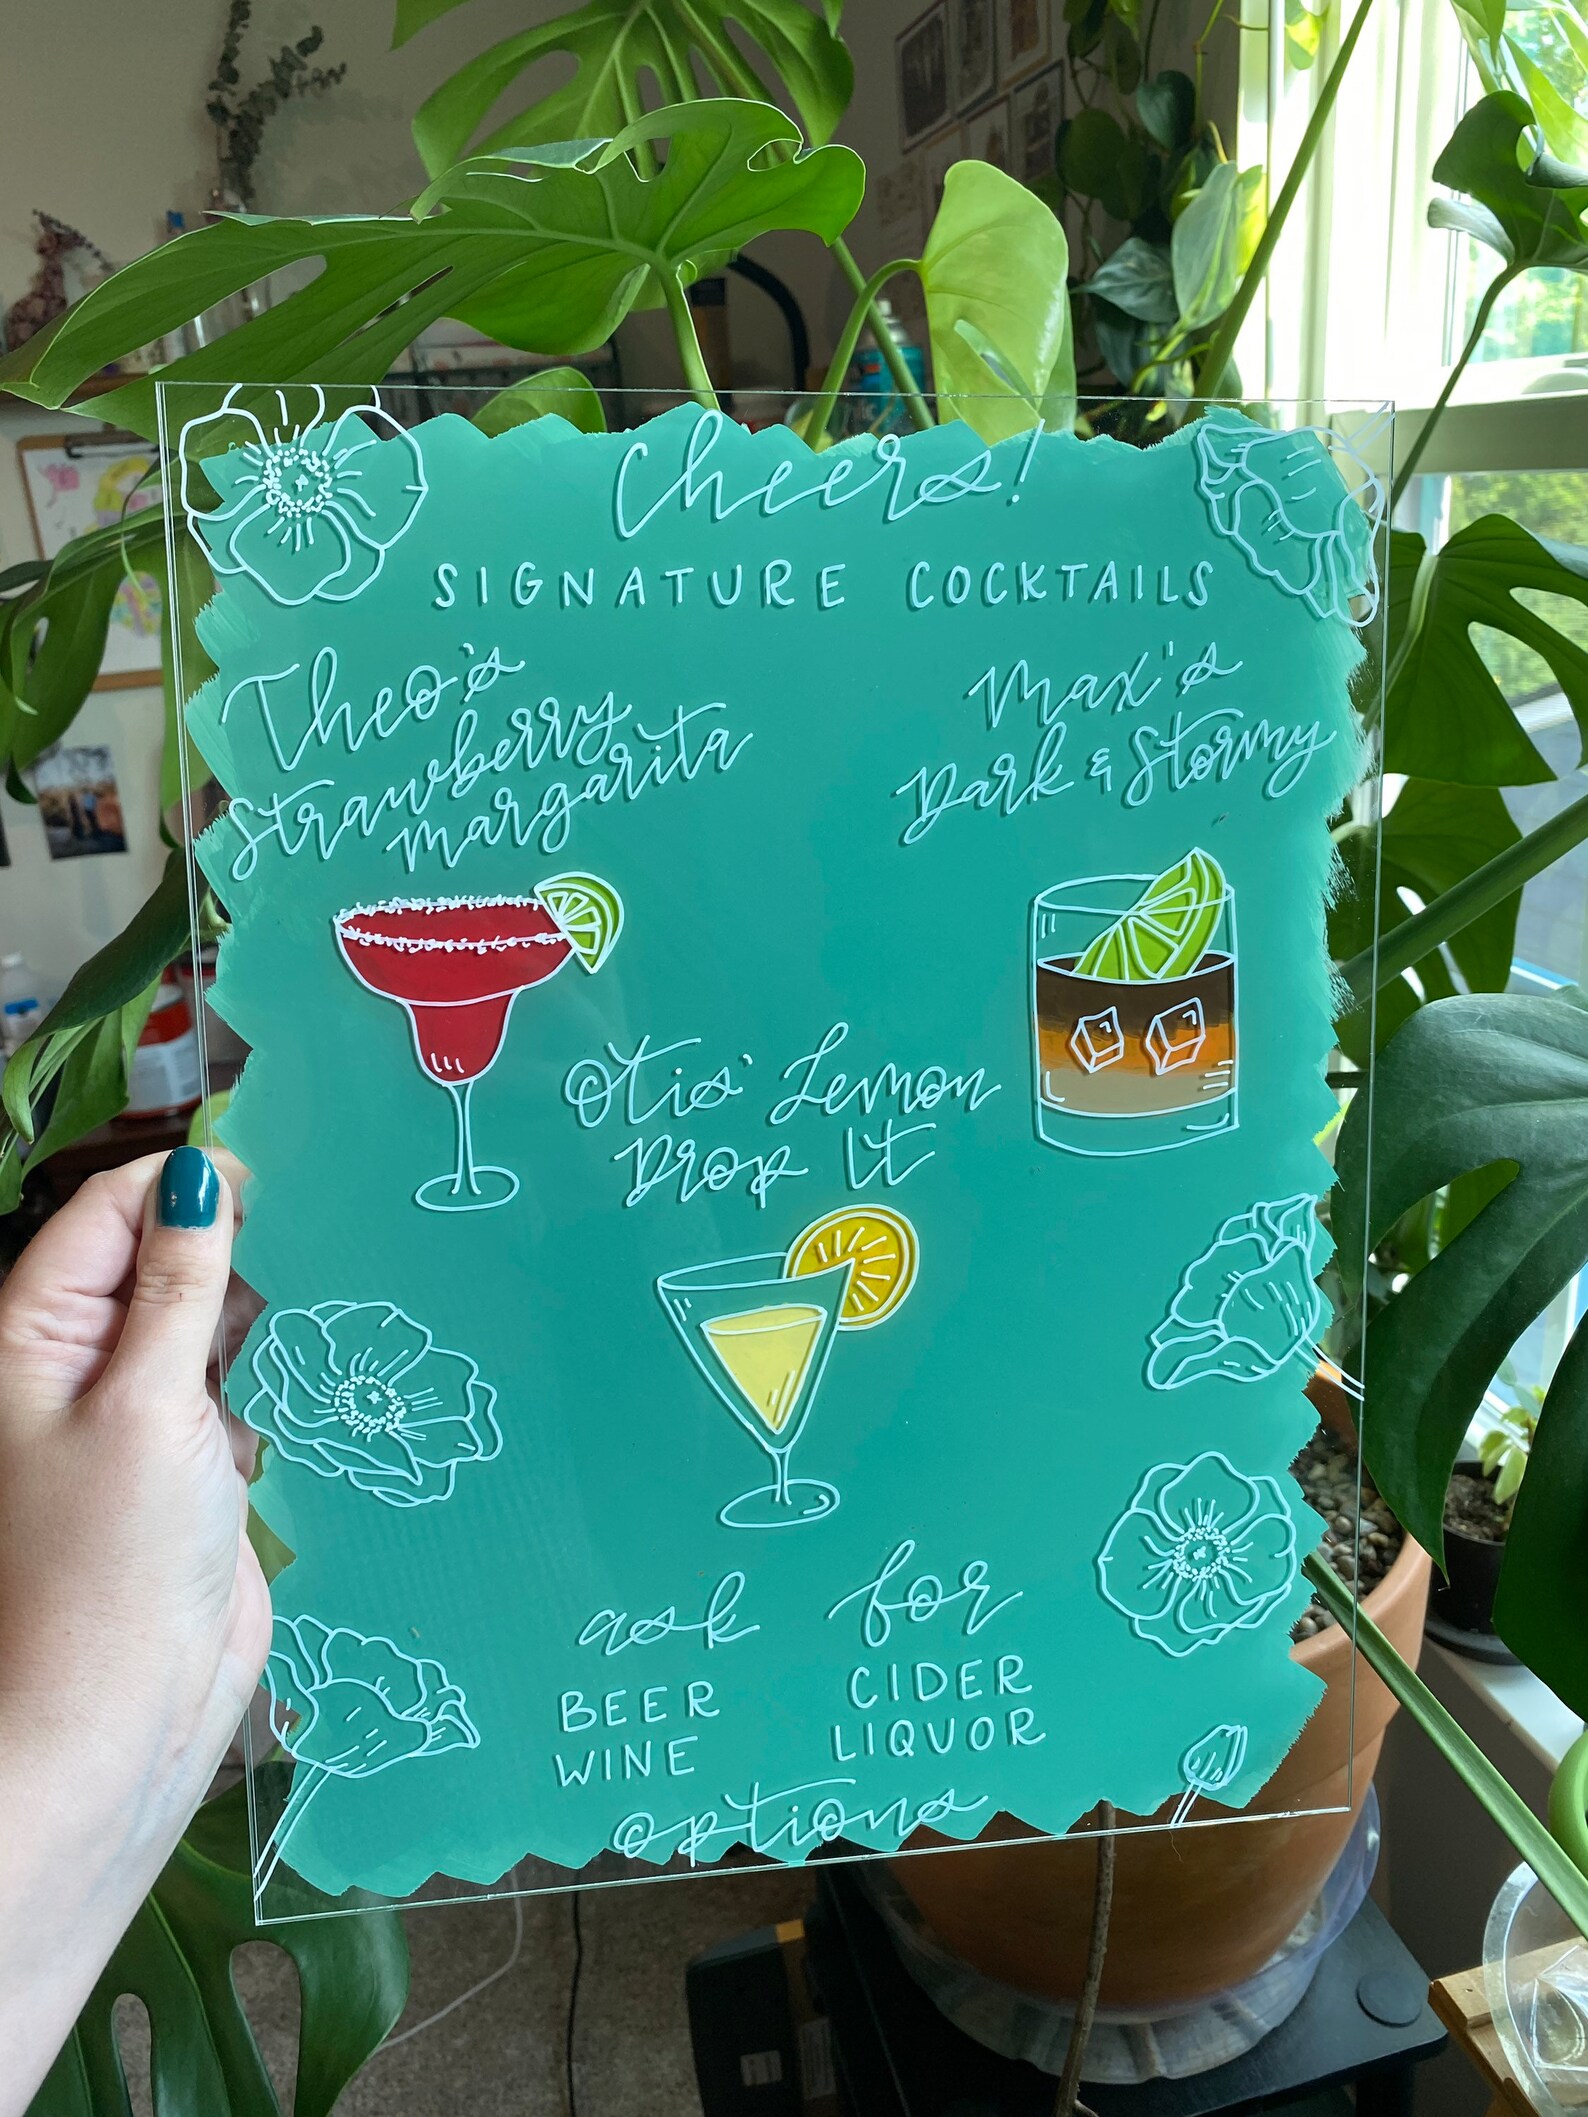 Cheers!
SIGNATURE COCKTAILS
Theo's
Strawberry
Margarita
Max's
Dark & Stormy
Otis' Lemon
Drop It
ask for
BEER CIDER
WINE LIQUOR
options